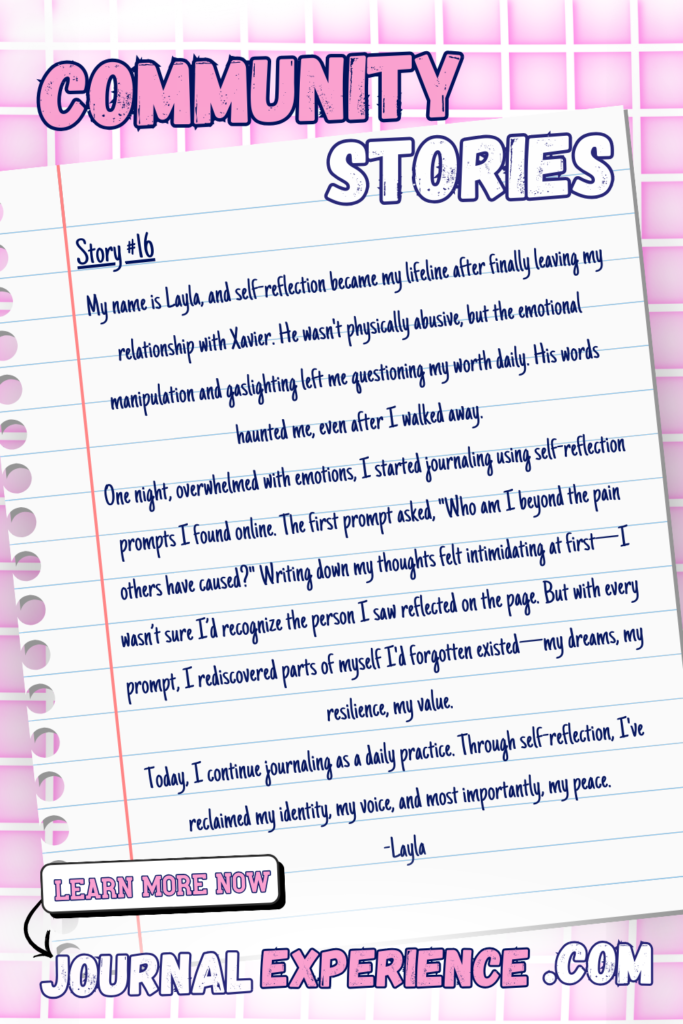 COMMUNITY
STORIES
Story #16
My name is Layla, and self-reflection became my lifeline after finally leaving my
relationship with Xavier. He wasn't physically abusive, but the emotional
manipulation and gaslighting left me questioning my worth daily. His words
haunted me, even after I walked away.
One night, overwhelmed with emotions, I started journaling using self-reflection
prompts I found online. The first prompt asked, "Who am I beyond the pain
others have caused?" Writing down my thoughts felt intimidating at first—I
wasn't sure I'd recognize the person I saw reflected on the page. But with every
prompt, I rediscovered parts of myself I'd forgotten existed—my dreams, my
resilience, my value.
Today, I continue journaling as a daily practice. Through self-reflection, I've
reclaimed my identity, my voice, and most importantly, my peace.
-Layla
LEARN MORE NOW
JOURNAL EXPERIENCE .COM